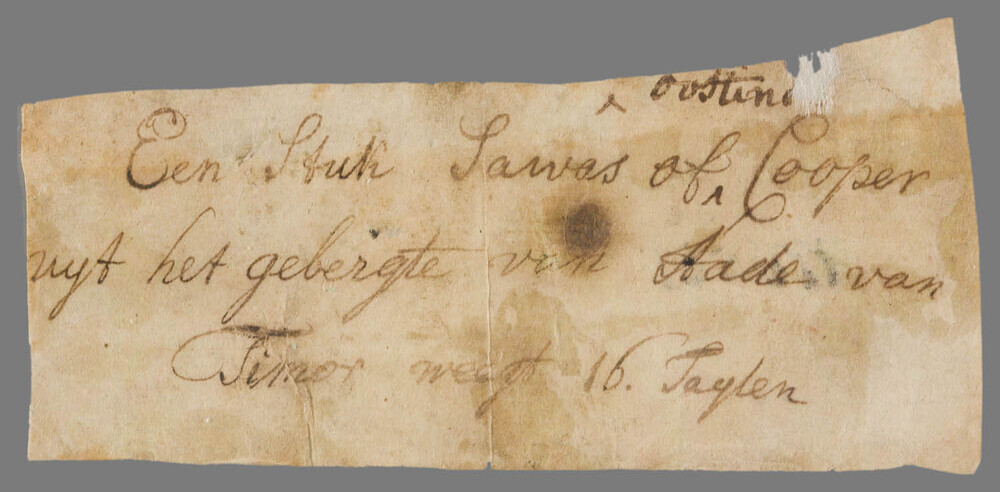 ^ oostind
Een Stuk Sawas of ^ Cooper
uyt het gebergte van Aade van
Timor weegt 16. Taylen